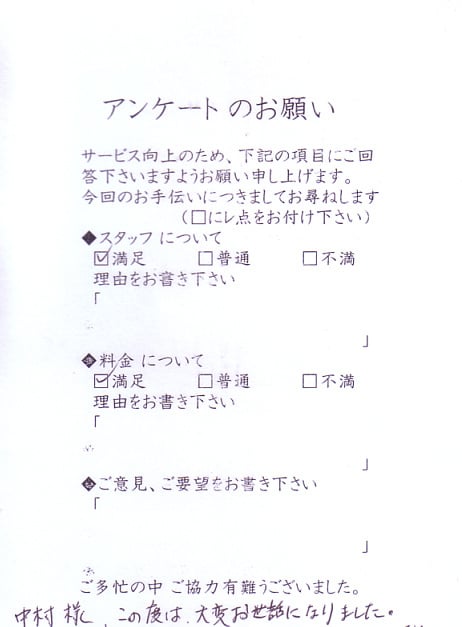 アンケートのお願い
サービス向上のため、下記の項目にご回
答下さいますようお願い申し上げます。
今回のお手伝いにつきましてお尋ねします
(□にレ点をお付け下さい)
◆スタッフについて
☑満足 □普通 □不満
理由をお書き下さい
「
」
◆料金について
☑満足 □普通 □不満
理由をお書き下さい
「
」
◆ご意見、ご要望をお書き下さい
「
」
ご多忙の中 ご協力有難うございました。
中村様、この度は、大変お世話になりました。